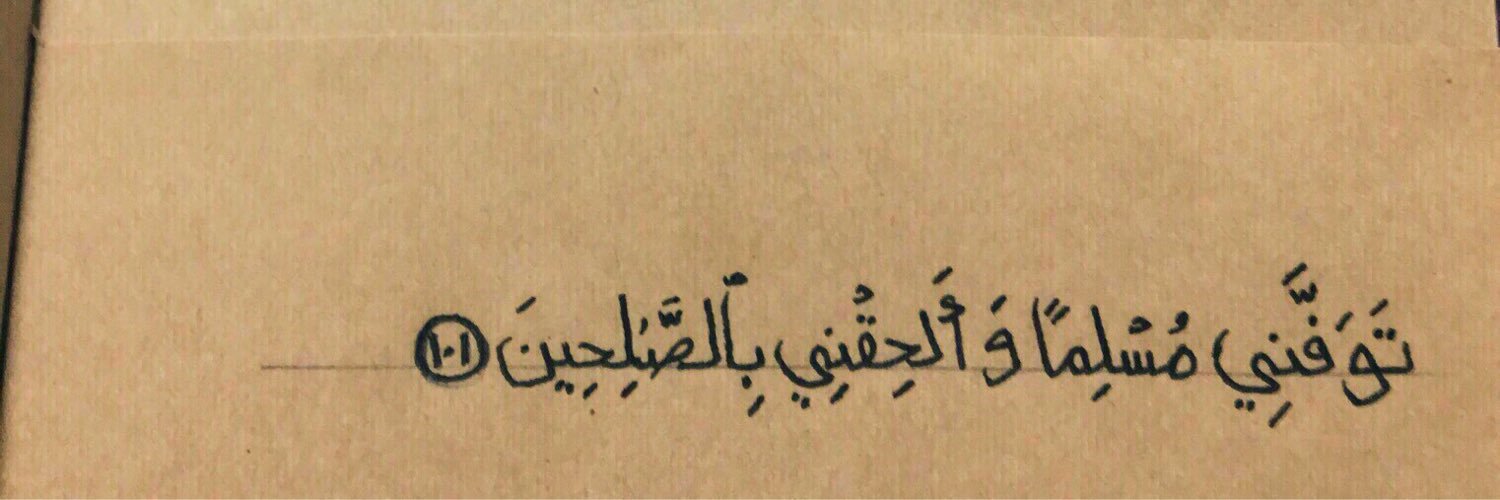 تَوَفَّنِي مُسْلِمًا وَأَلحِقْنِي بِٱلصَّٰلِحِينَ ١٠١